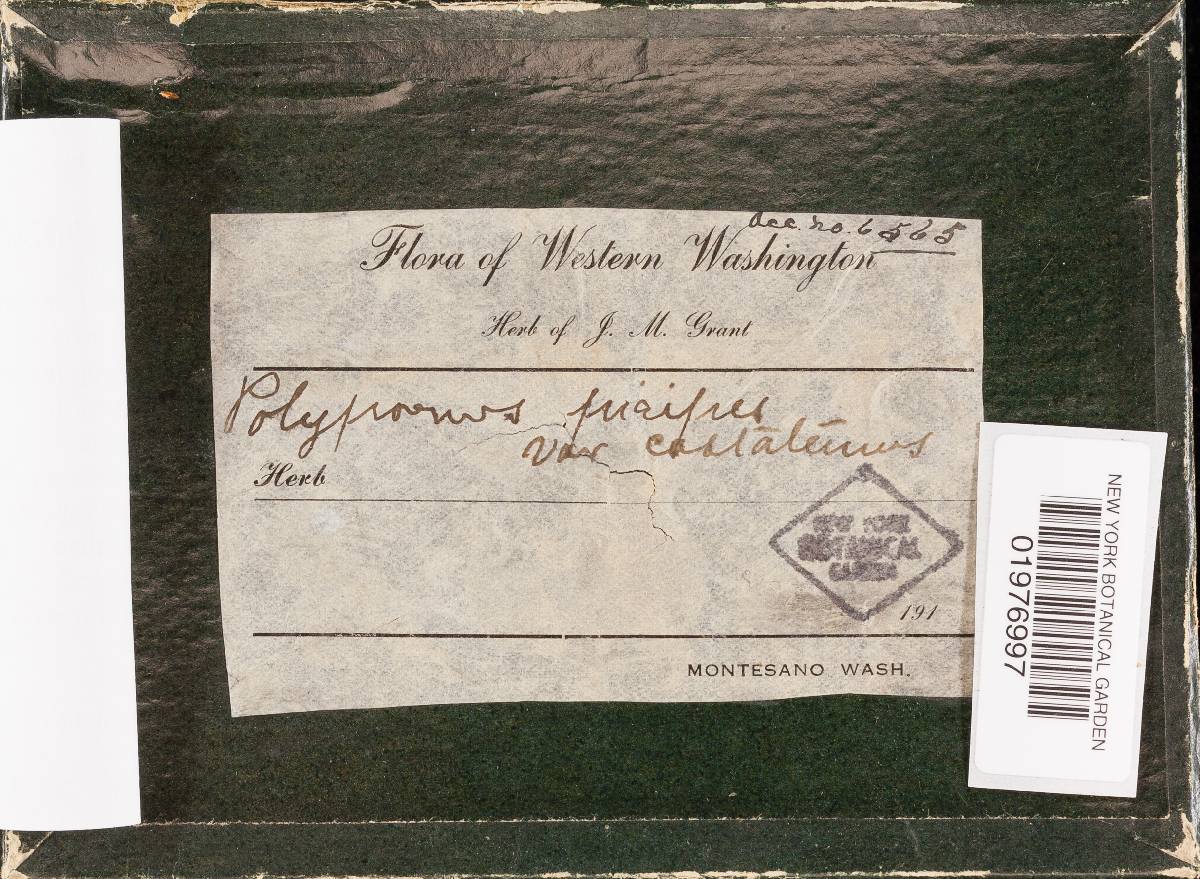 Acc. no. 6565
Flora of Western Washington
Herb of J. M. Grant
Polyporus picipes
var
Herb
NEW YORK
BOTANICAL
GARDEN
191
MONTESANO WASH.
NEW YORK BOTANICAL GARDEN
01976997